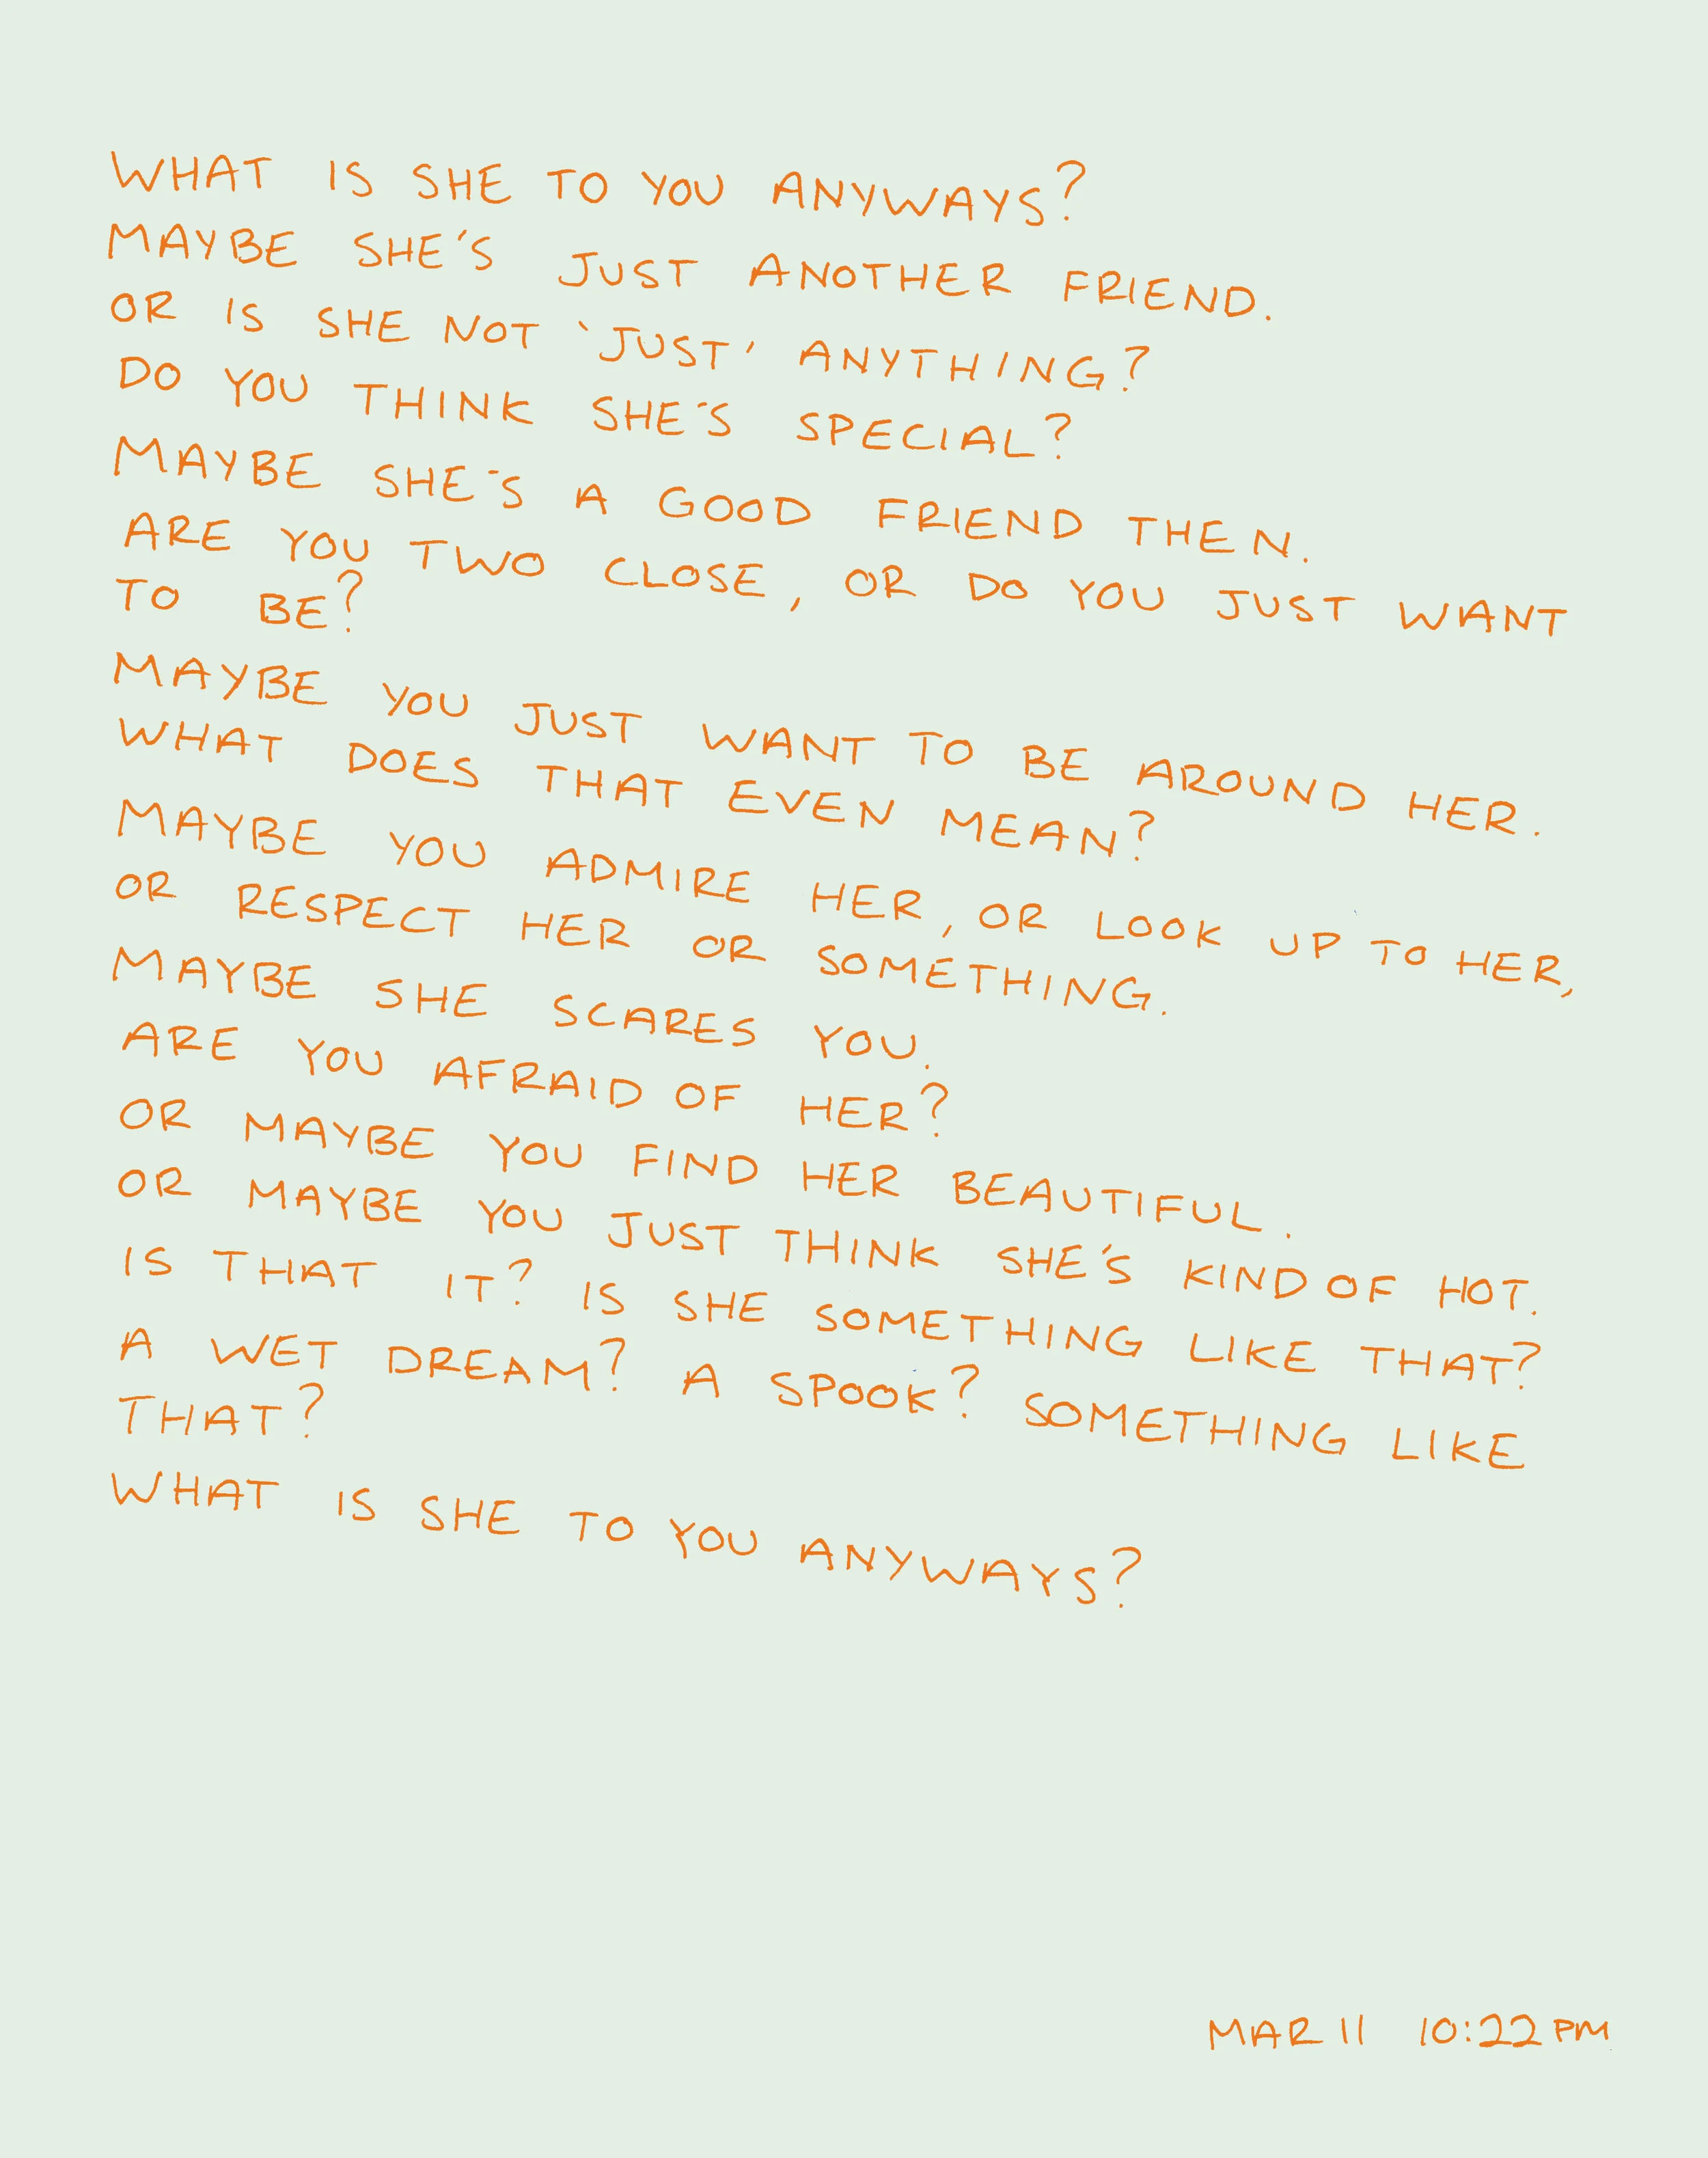 WHAT IS SHE TO YOU ANYWAYS?
MAYBE SHE'S JUST ANOTHER FRIEND.
OR IS SHE NOT 'JUST' ANYTHING?
DO YOU THINK SHE'S SPECIAL?
MAYBE SHE'S A GOOD FRIEND THEN.
ARE YOU TWO CLOSE, OR DO YOU JUST WANT
TO BE?
MAYBE YOU JUST WANT TO BE AROUND HER.
WHAT DOES THAT EVEN MEAN?
MAYBE YOU ADMIRE HER, OR LOOK UP TO HER,
OR RESPECT HER OR SOMETHING.
MAYBE SHE SCARES YOU.
ARE YOU AFRAID OF HER?
OR MAYBE YOU FIND HER BEAUTIFUL.
OR MAYBE YOU JUST THINK SHE'S KIND OF HOT.
IS THAT IT? IS SHE SOMETHING LIKE THAT?
A WET DREAM? A SPOOK? SOMETHING LIKE
THAT?
WHAT IS SHE TO YOU ANYWAYS?
MAR 11 10:22 PM